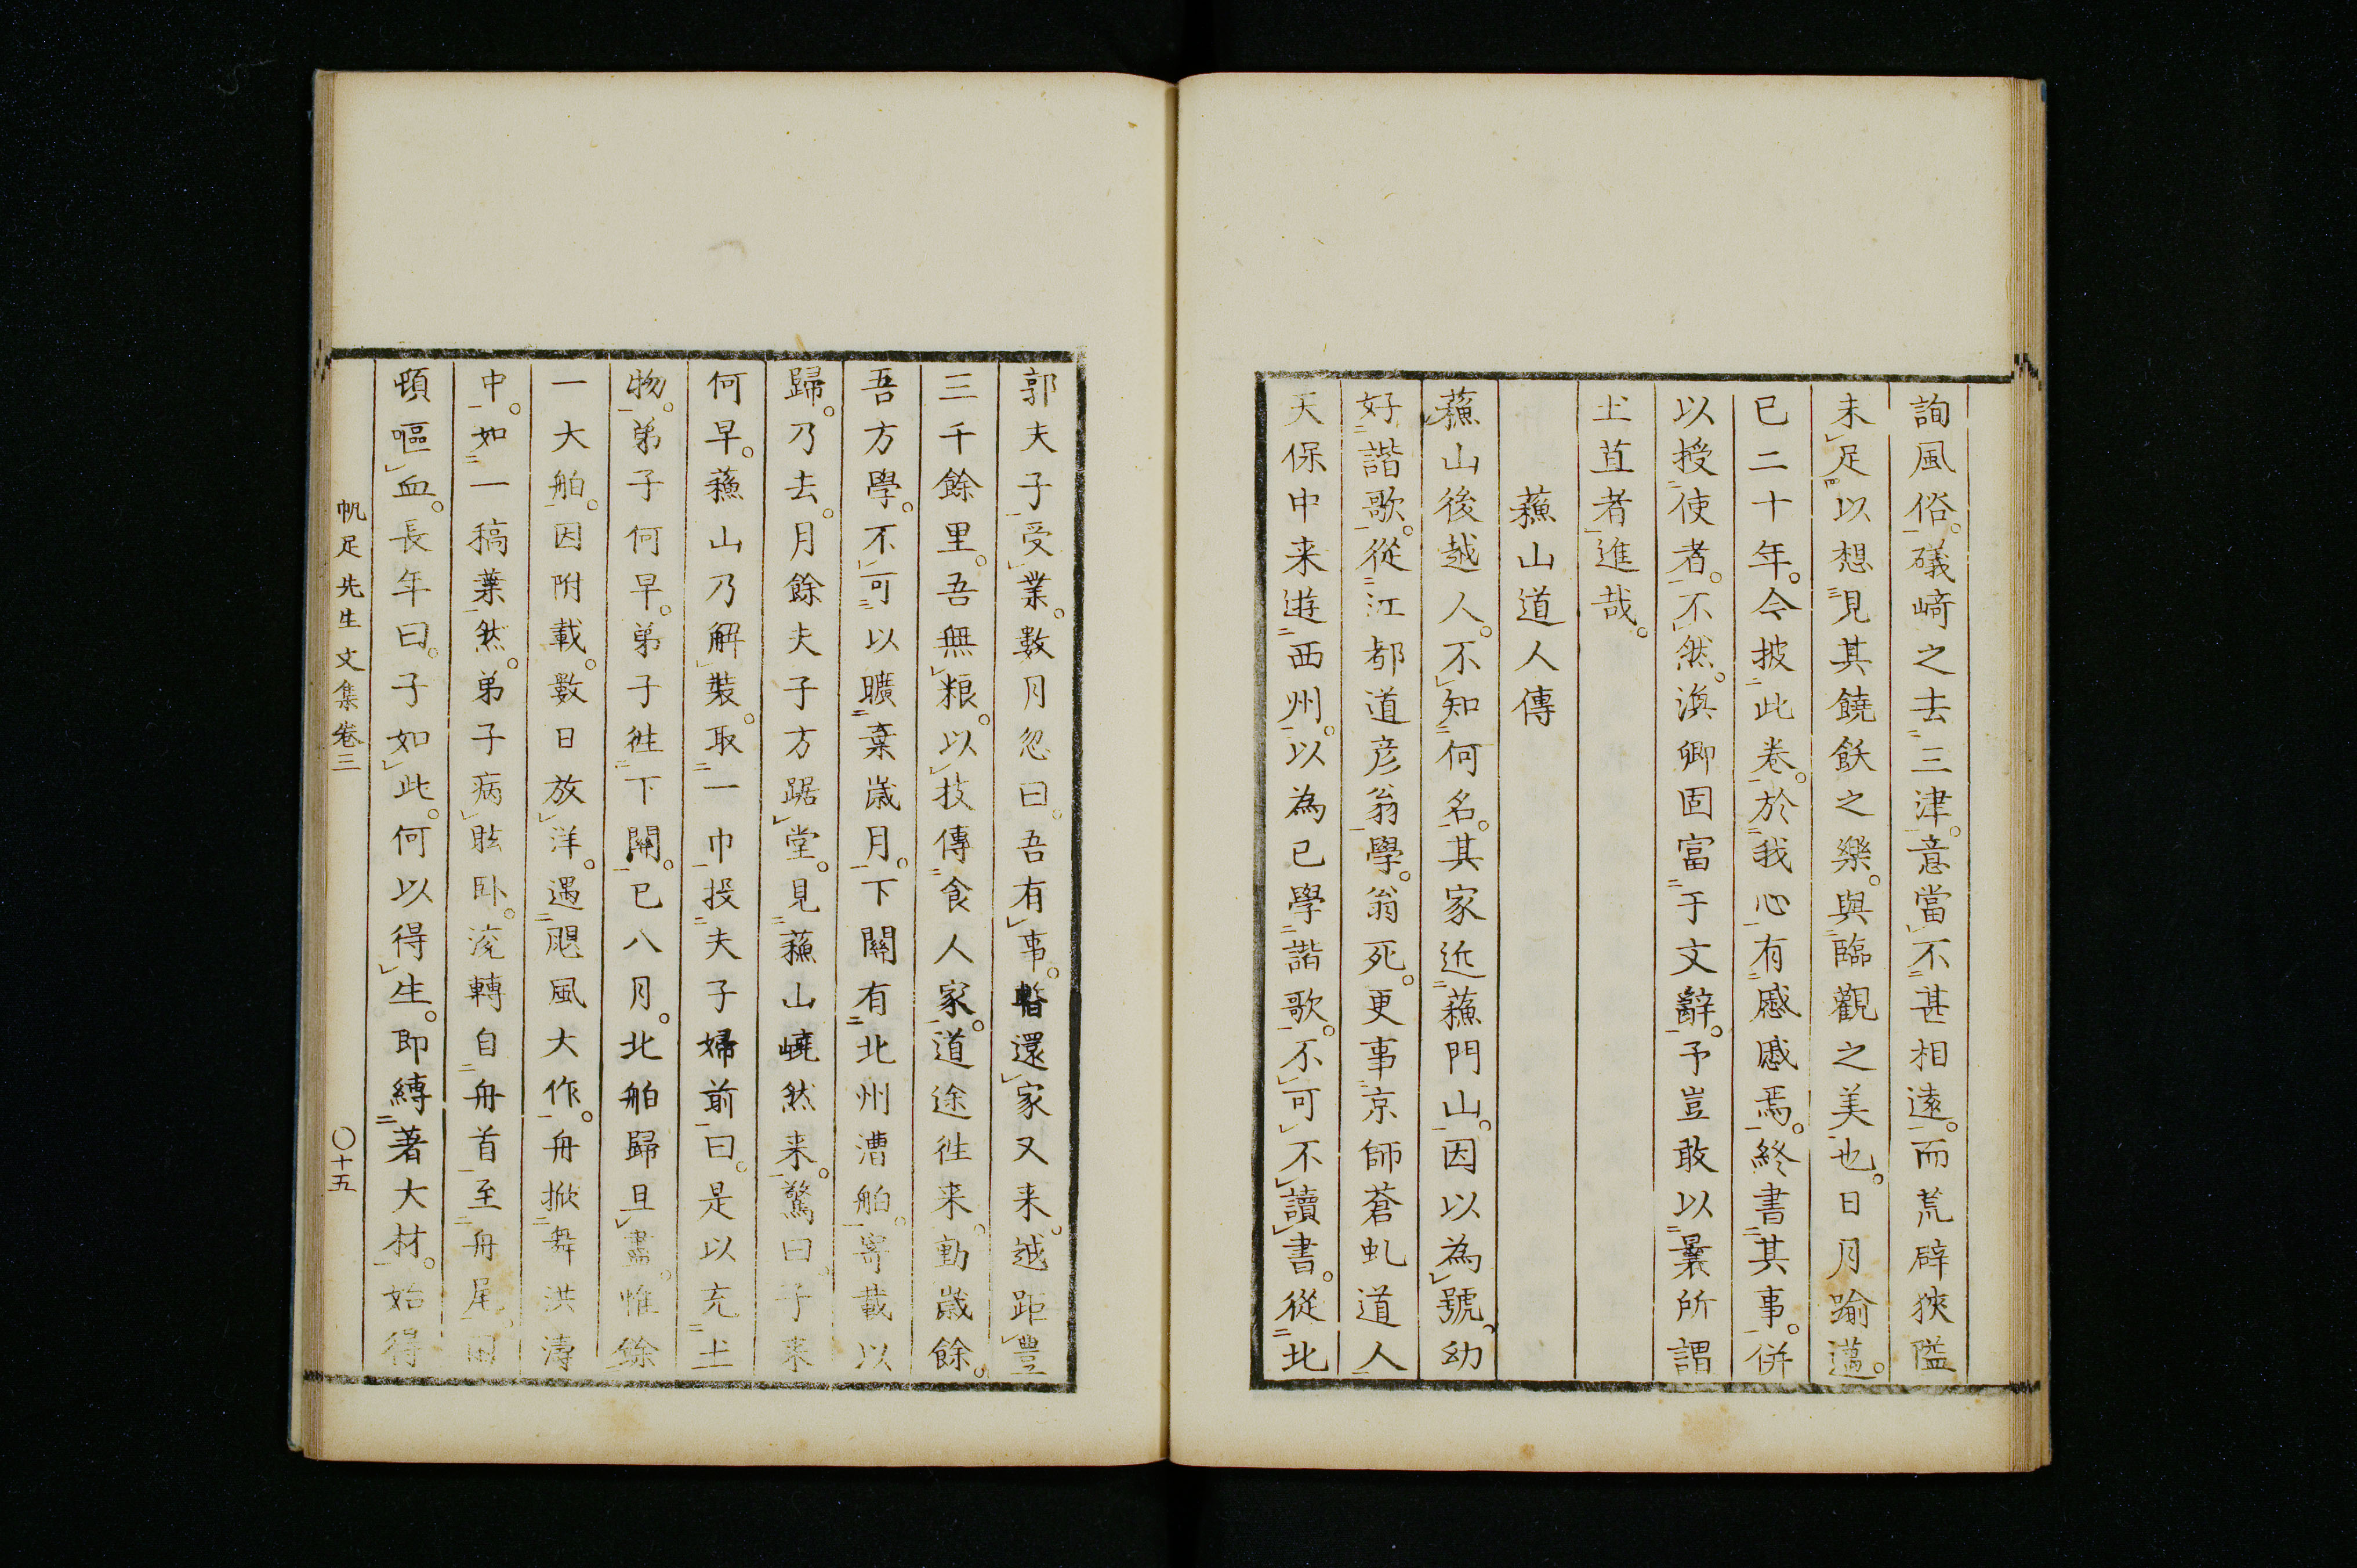 詢風俗。礒﨑之去三津。意當不甚相遠。而荒辟狹隘
未足以想見其饒飫之樂。與臨觀之美也。日月踰邁。
已二十年。今披此卷。於我心有慼慼焉。終書其事。併
以授使者。不然。溟卿固富于文辭。予豈敢以曩所謂
土苴者進哉。
蘓山道人傳
蘓山後越人。不知何名。其家近蘓門山。因以為號。幼
好諧歌。從江都道彦翁學。翁死。更事京師蒼虬道人
天保中来遊西州。以為已學諧歌。不可不讀書。從北
郭夫子受業。數月忽曰。吾有事。暫還家又来。越距豐
三千餘里。吾無粮。以技傳食人家。道途徃来。動歳餘。
吾方學。不可以曠棄歳月。下關有北州漕舶。寄載以
歸。乃去。月餘夫子方踞堂。見蘓山嶢然来。驚曰。子来
何早。蘓山乃解裝。取一巾投夫子婦前曰。是以充土
物。弟子何早。弟子徃下關。已八月。北舶歸且盡。惟餘
一大舶。因附載。數日放洋。遇颶風大作。舟掀舞洪濤
中。如一稿葉然。弟子病眩卧。滾轉自舟首至舟尾。
頓嘔血。長年曰。子如此。何以得生。即縛著大材。始得
帆足先生文集卷三
〇十五